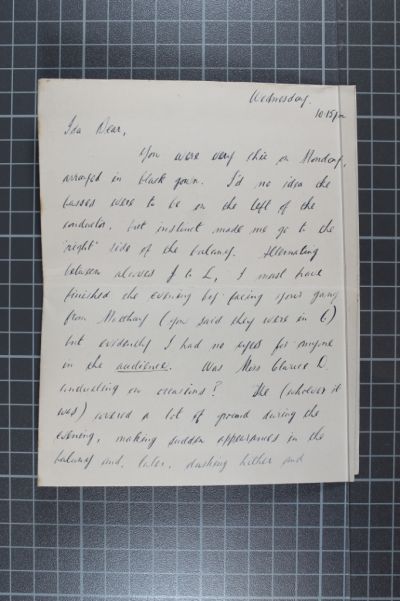 Wednesday.
10.15pm
Ida Dear,
You were very chic on Monday,
arrayed in black gown. I'd no idea the
basses were to be on the left of the
conductor, but instinct made me go to the
'right' side of the balcony. Alternating
between alcoves J to L, I must have
finished the evening by facing your gang
from (you said they were in G)
but evidently I had no eyes for anyone
in the audience. Was Miss Clarice D.
conducting on occasions? She (whoever it
was) covered a lot of ground during the
evening, making sudden appearances in the
balcony and, later, dashing hither and